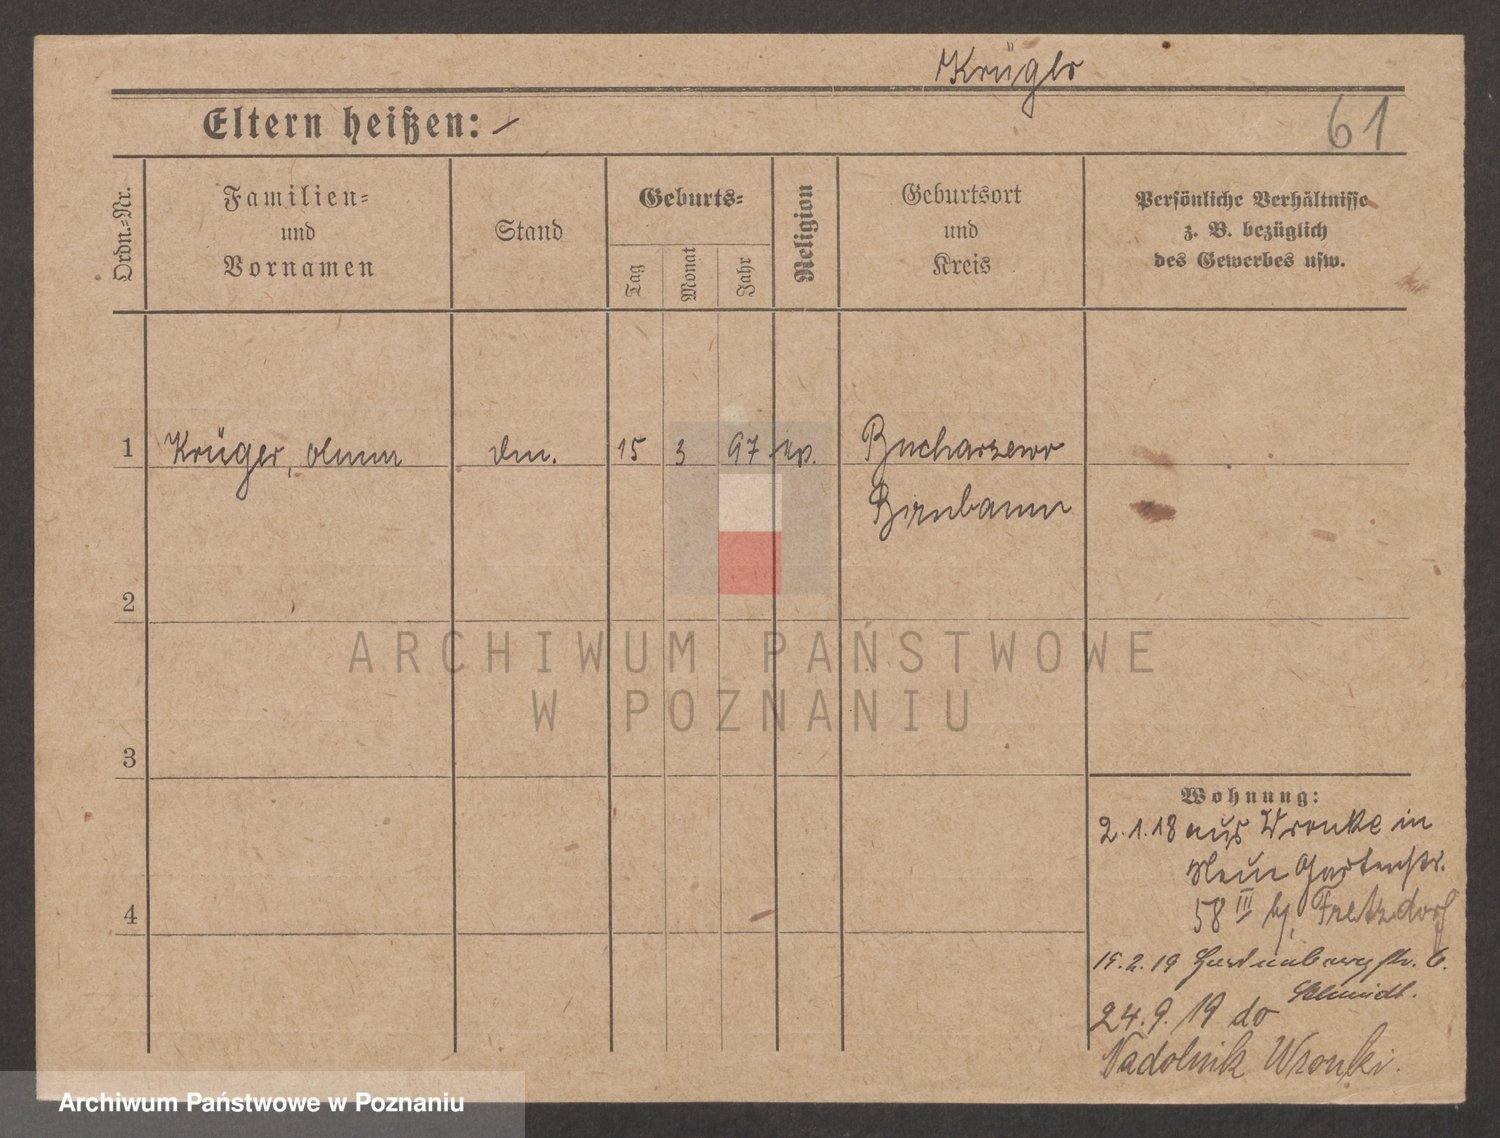 Krüger
61
Eltern heißen: –
Ordn.-Nr.
Familien-
und
Vornamen
Stand
Geburts-
Tag
Monat
Jahr
Religion
Geburtsort
und
Kreis
Persönliche Verhältnisse
z. B. bezüglich
des Gewerbes usw.
1
Krüger,
15
3
97
Bucharzewo
Birnbaum
2
3
4
Wohnung:
2.1.18 aus Wronke in
Neue Gartenstr.
58 III bj. Fretzdorf
15.2.19
Schmidt.
24.9.19 do
Nadolnik Wronki.
ARCHIWUM PAŃSTWOWE
W POZNANIU
Archiwum Państwowe w Poznaniu